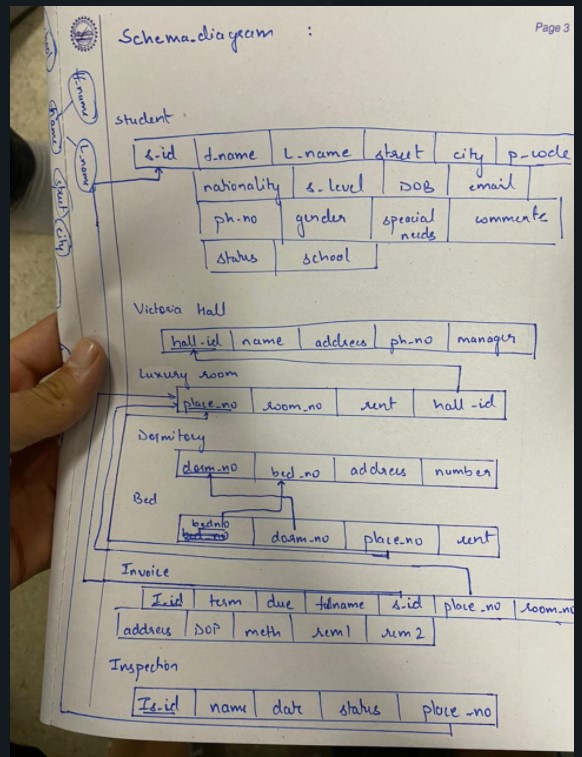 Page 3
Schema-diagram :
Student
s-id f-name L-name street city p-code
nationality s-level DOB email
ph-no gender special needs comments
status school
Victoria Hall
hall-id name address ph-no manager
Luxury room
place-no room-no rent hall-id
Dormitory
dorm-no bed-no address number
Bed
bedno dorm-no place-no rent
Invoice
I-id term due fulname s-id place-no room-no
address DOP meth rem1 rem2
Inspection
Is-id name date status place-no
f-name
L-name
fname
street
city